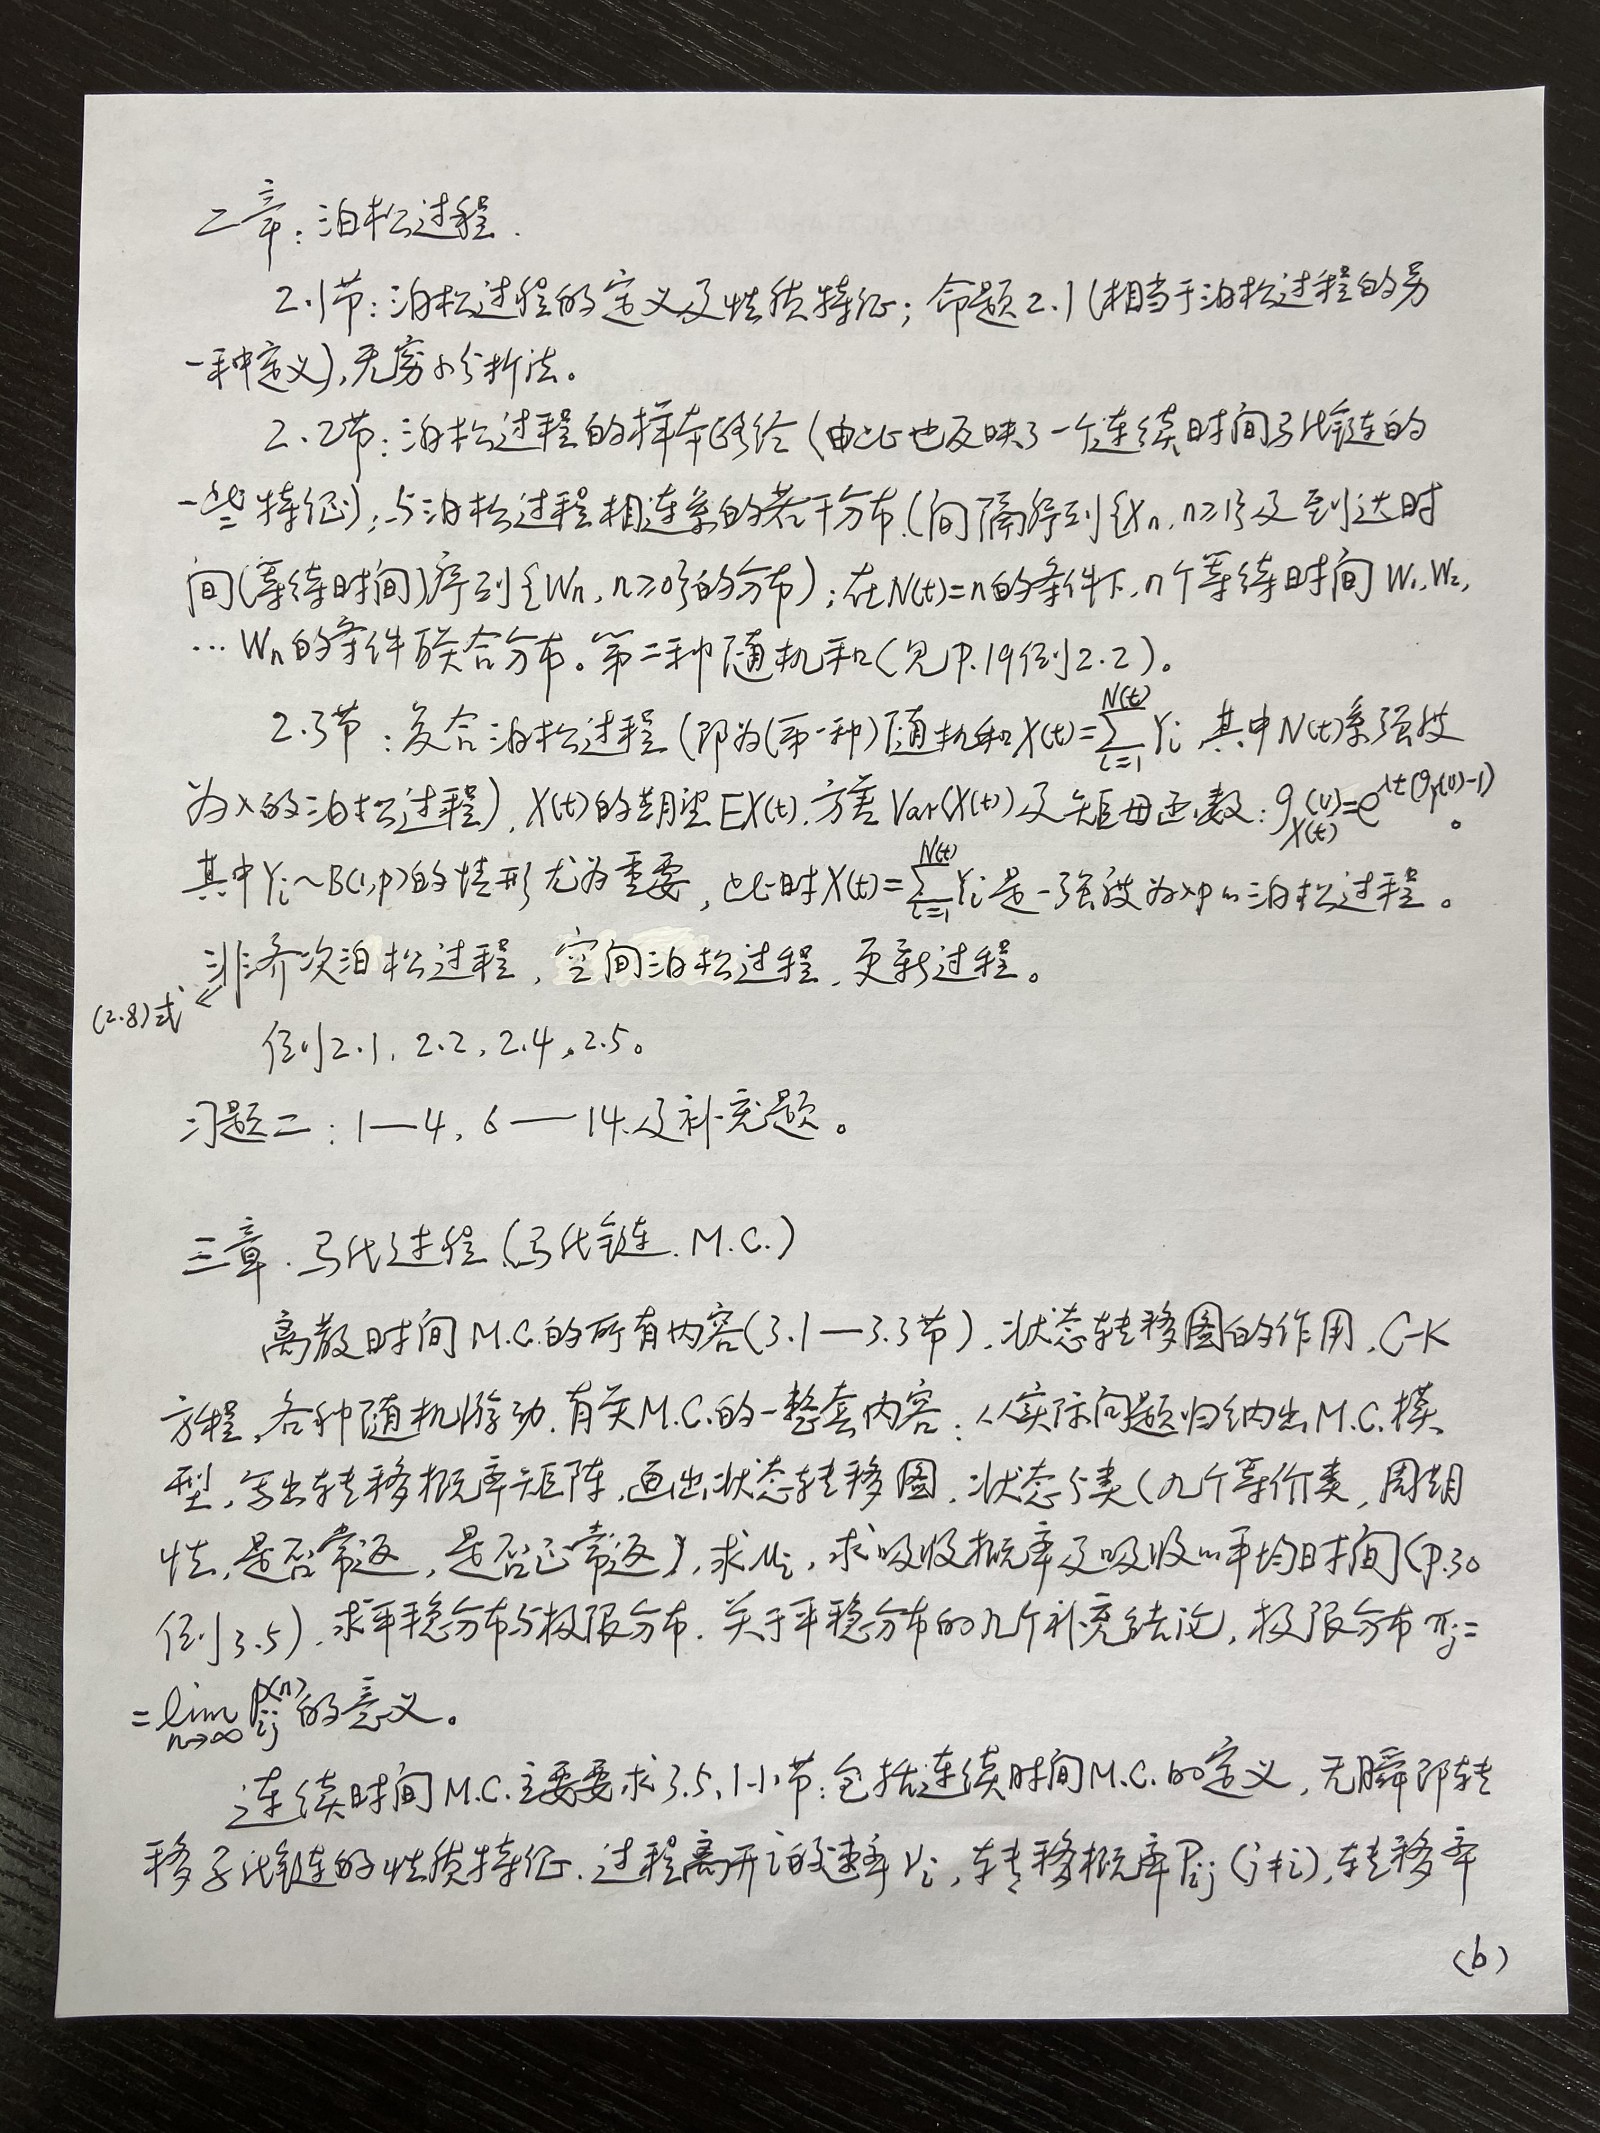 二章：泊松过程.
2.1节：泊松过程的定义及性质特征；命题2.1（相当于泊松过程的另
一种定义），无穷小分析法。
2.2节：泊松过程的样本路径（由此也反映了一个连续时间马氏链的
一些特征）；与泊松过程相连系的若干分布（间隔序列{Xn, n≥1}及到达时
间(等待时间)序列{Wn, n≥0}的分布）；在N(t)=n的条件下，n个等待时间W1,W2,
…Wn的条件联合分布。第二种随机和（见P.19例2.2）。
2.3节：复合泊松过程（即为(第一种)随机和X(t)=∑_{i=1}^{N(t)} Yi，其中N(t)系强度
为λ的泊松过程），X(t)的期望EX(t)，方差Var(X(t))及矩母函数：g_{X(t)}(u)=e^{λt(g_Y(u)-1)}。
其中Yi~B(1,p)的情形尤为重要，此时X(t)=∑_{i=1}^{N(t)} Yi是一强度为λp的泊松过程。
非齐次泊松过程，空间泊松过程，更新过程。
(2.8)式↙
例2.1，2.2，2.4，2.5。
习题二：1—4，6—14及补充题。
三章．马氏过程（马氏链．M.C.）
离散时间M.C.的所有内容（3.1—3.3节），状态转移图的作用，C-K
方程，各种随机游动．有关M.C.的一整套内容：从实际问题归纳出M.C.模
型，写出转移概率矩阵，画出状态转移图，状态分类（几个等价类，周期
性，是否常返，是否正常返），求μi，求吸收概率及吸收的平均时间（P.30
例3.5），求平稳分布与极限分布．关于平稳分布的几个补充结论，极限分布πj=
=lim_{n→∞} P_{ij}^{(n)}的意义。
连续时间M.C.主要要求3.5.1小节：包括连续时间M.C.的定义，无瞬即转
移马氏链的性质特征．过程离开i的速率νi，转移概率Pij (j≠i)，转移率
(b)